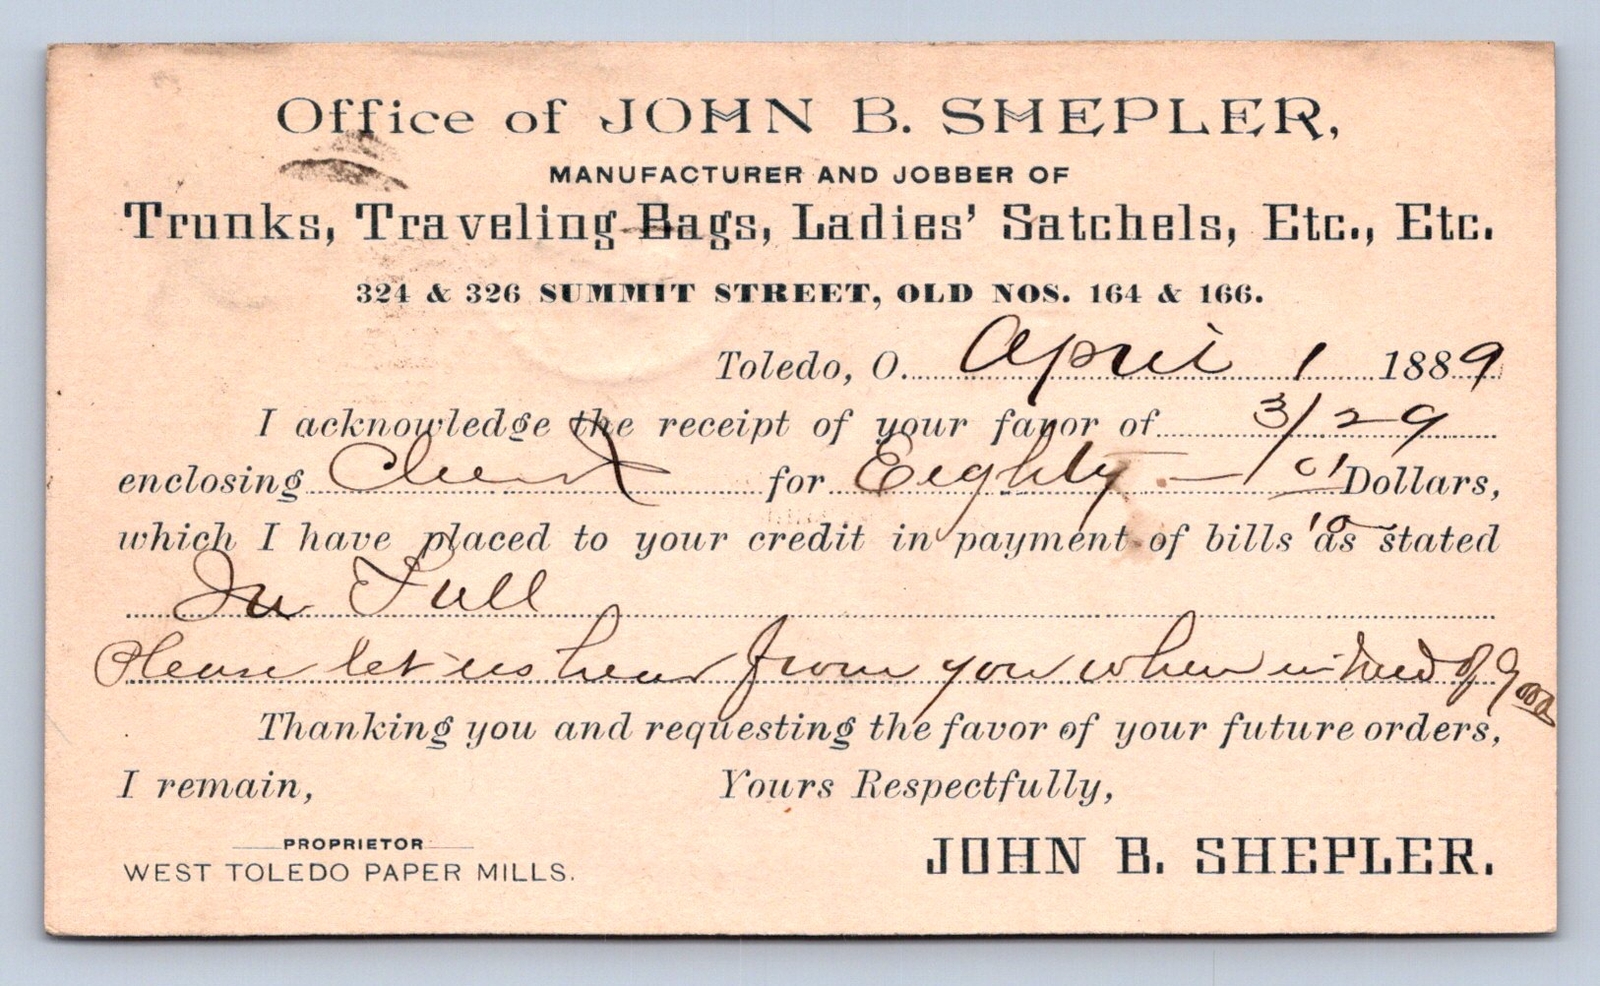 Office of JOHN B. SHEPLER,
MANUFACTURER AND JOBBER OF
Trunks, Traveling Bags, Ladies' Satchels, Etc., Etc.
324 & 326 SUMMIT STREET, OLD NOS. 164 & 166.
Toledo, O. April 1 1889
I acknowledge the receipt of your favor of 3/29
enclosing Check for Eighty Dollars,
which I have placed to your credit in payment of bills as stated
In Full
Please let us hear from you when in need of
Thanking you and requesting the favor of your future orders,
I remain, Yours Respectfully,
PROPRIETOR
WEST TOLEDO PAPER MILLS.
JOHN B. SHEPLER.